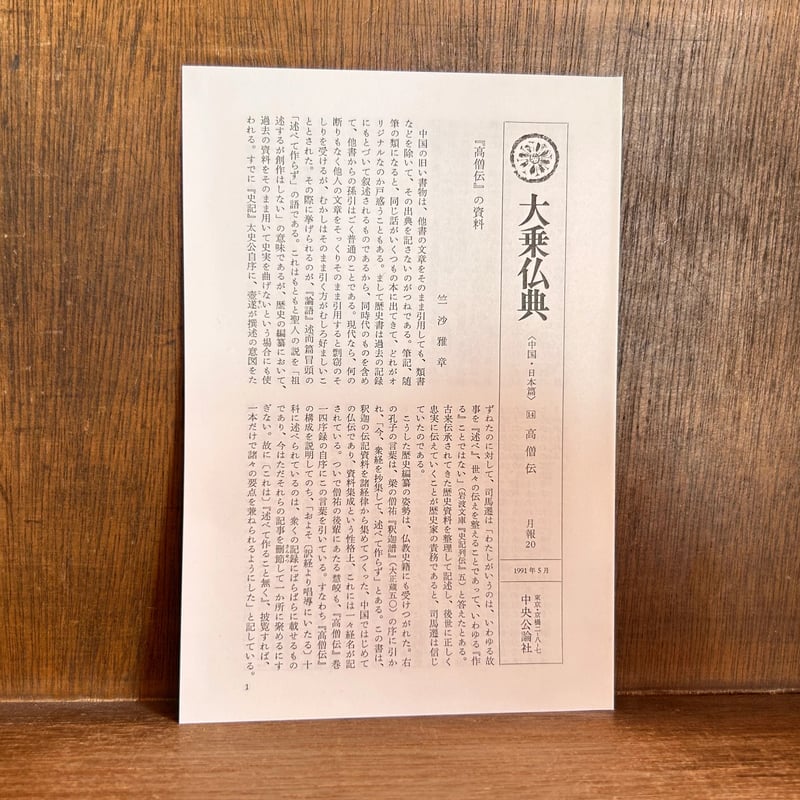 大乗仏典
〈中国・日本篇〉 14 高僧伝
月報20
1991年5月
東京・京橋二-八-七
中央公論社
『高僧伝』の資料
竺沙雅章
中国の旧い書物は、他書の文章をそのまま引用しても、類書
などを除いて、その出典を記さないのがつねである。筆記、随
筆の類になると、同じ話がいくつもの本に出てきて、どれがオ
リジナルなのか戸惑うこともある。まして歴史書は過去の記録
にもとづいて叙述されるものであるから、同時代のものを含め
て、他書からの孫引はごく普通のことである。現代なら、何の
断りもなく他人の文章をそっくりそのまま引用すると剽窃のそ
しりを受けるが、むかしはそのまま引く方がむしろ好ましいこ
ととされた。その際に挙げられるのが、『論語』述而篇冒頭の
「述べて作らず」の語である。これはもともと聖人の説を「祖
述するが創作はしない」の意味であるが、歴史の編纂において、
過去の資料をそのまま用いて史実を曲げないという場合にも使
われる。すでに『史記』太史公自序に、壺遂が撰述の意図をた
ずねたのに対して、司馬遷は「わたしがいうのは、いわゆる故
事を『述べ』、世々の伝えを整えることであって、いわゆる『作
る』ことではない」（岩波文庫『史記列伝』五）と答えたとある。
古来伝承されてきた歴史資料を整理して記述し、後世に正しく
忠実に伝えていくことが歴史家の責務であると、司馬遷は信じ
ていたのである。
こうした歴史編纂の姿勢は、仏教史籍にも受けつがれた。右
の孔子の言葉は、梁の僧祐『釈迦譜』（大正蔵五〇）の序に引か
れ、「今、衆経を抄集して、述べて作らず」とある。この書は、
釈迦の伝記資料を諸経律から集めてつくった、中国ではじめて
の仏伝であり、資料集成という性格上、これには一々経名が記
されている。ついで僧祐の後輩にあたる慧皎も、『高僧伝』巻
一四序録の自序にこの言葉を引いている。すなわち『高僧伝』
の構成を説明してのち、「およそ〔訳経より唱導にいたる〕十
科に述べられているのは、衆くの記録にばらばらに載せるもの
であり、今はただそれらの記事を刪節して一か所に聚めるにす
ぎない。故に〔これは〕『述べて作ること無く』、披覧すれば、
一本だけで諸々の要点を兼ねられるようにした」と記している。
1